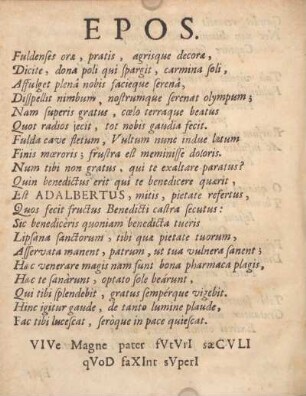 EPOS.
Fuldenses oræ, pratis, agrisque decoræ,
Dicite, dona poli qui spargit, carmina soli,
Affulget plenâ nobis facieque serenâ,
Dispellit nimbum, nostrumque serenat olympum;
Nam superis gratus, cœlo terraque beatus
Quot radios jecit, tot nobis gaudia fecit.
Fulda cave fletum, Vultum nunc indue lætum
Finis mœroris; frustra est meminisse doloris.
Num tibi non gratus, qui te exaltare paratus?
Quin benedictus erit qui te benedicere quærit,
Est ADALBERTUS, mitis, pietate refertus,
Quos fecit fructus Benedicti castra secutus:
Sic benedicēris quoniam benedicta tueris
Lipsana sanctorum; tibi qua pietate tuorum,
Asservata manent, patrum, ut tua vulnera sanent;
Hac venerare magis nam sunt bona pharmaca plagis,
Hac te sanârunt, optato sole beârunt,
Qui tibi splendebit, gratus sempérque vigebit.
Hinc igitur gaude, de tanto lumine plaude,
Fac tibi lucescat, seróque in pace quiescat.
VIVe Magne pater fVtVrI sæCVLI
qVoD faXInt sVperI